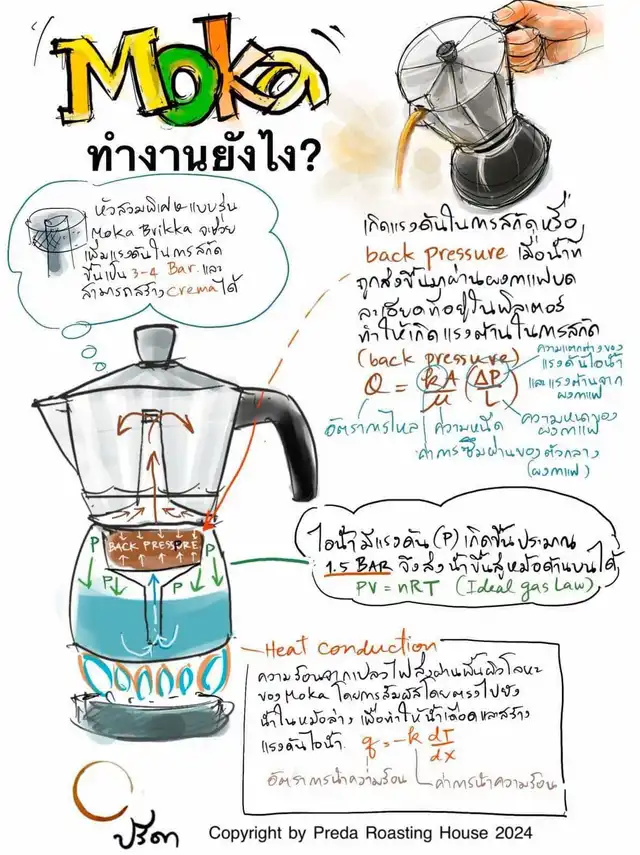 "Moka"
ทำงานยังไง?
หัวสวมพิเศษแบบรุ่น
Moka Brikka จะช่วย
เพิ่มแรงดันในการสกัด
ขึ้นเป็น 3-4 Bar. และ
สามารถสร้าง crema ได้
เกิดแรงดันในการสกัดหรือ
back pressure เมื่อน้ำที่
ถูกส่งขึ้นมาผ่านผงกาแฟบด
ละเอียดที่อยู่ในฟิลเตอร์
ทำให้เกิดแรงต้านในการสกัด
(back pressure)
ความแตกต่างของ
แรงดันไอน้ำ
และแรงต้านจาก
ผงกาแฟ
Q = kA/μ (ΔP/L)
อัตราการไหล
ความหนืด
ความหนาของ
ผงกาแฟ
ค่าการซึมผ่านของตัวกลาง
(ผงกาแฟ)
P BACK PRESSURE P
P P
ไอน้ำมีแรงดัน (P) เกิดขึ้นประมาณ
1.5 BAR จึงส่งน้ำขึ้นสู่หม้อด้านบนได้
PV = nRT (Ideal gas law)
Heat conduction
ความร้อนจากเปลวไฟส่งผ่านพื้นผิวโลหะ
ของ Moka โดยการสัมผัสโดยตรงไปยัง
น้ำในหม้อล่าง เพื่อทำให้น้ำเดือดและสร้าง
แรงดันไอน้ำ. q = -k dT/dx
อัตราการนำความร้อน
ค่าการนำความร้อน
ปรีดา
Copyright by Preda Roasting House 2024